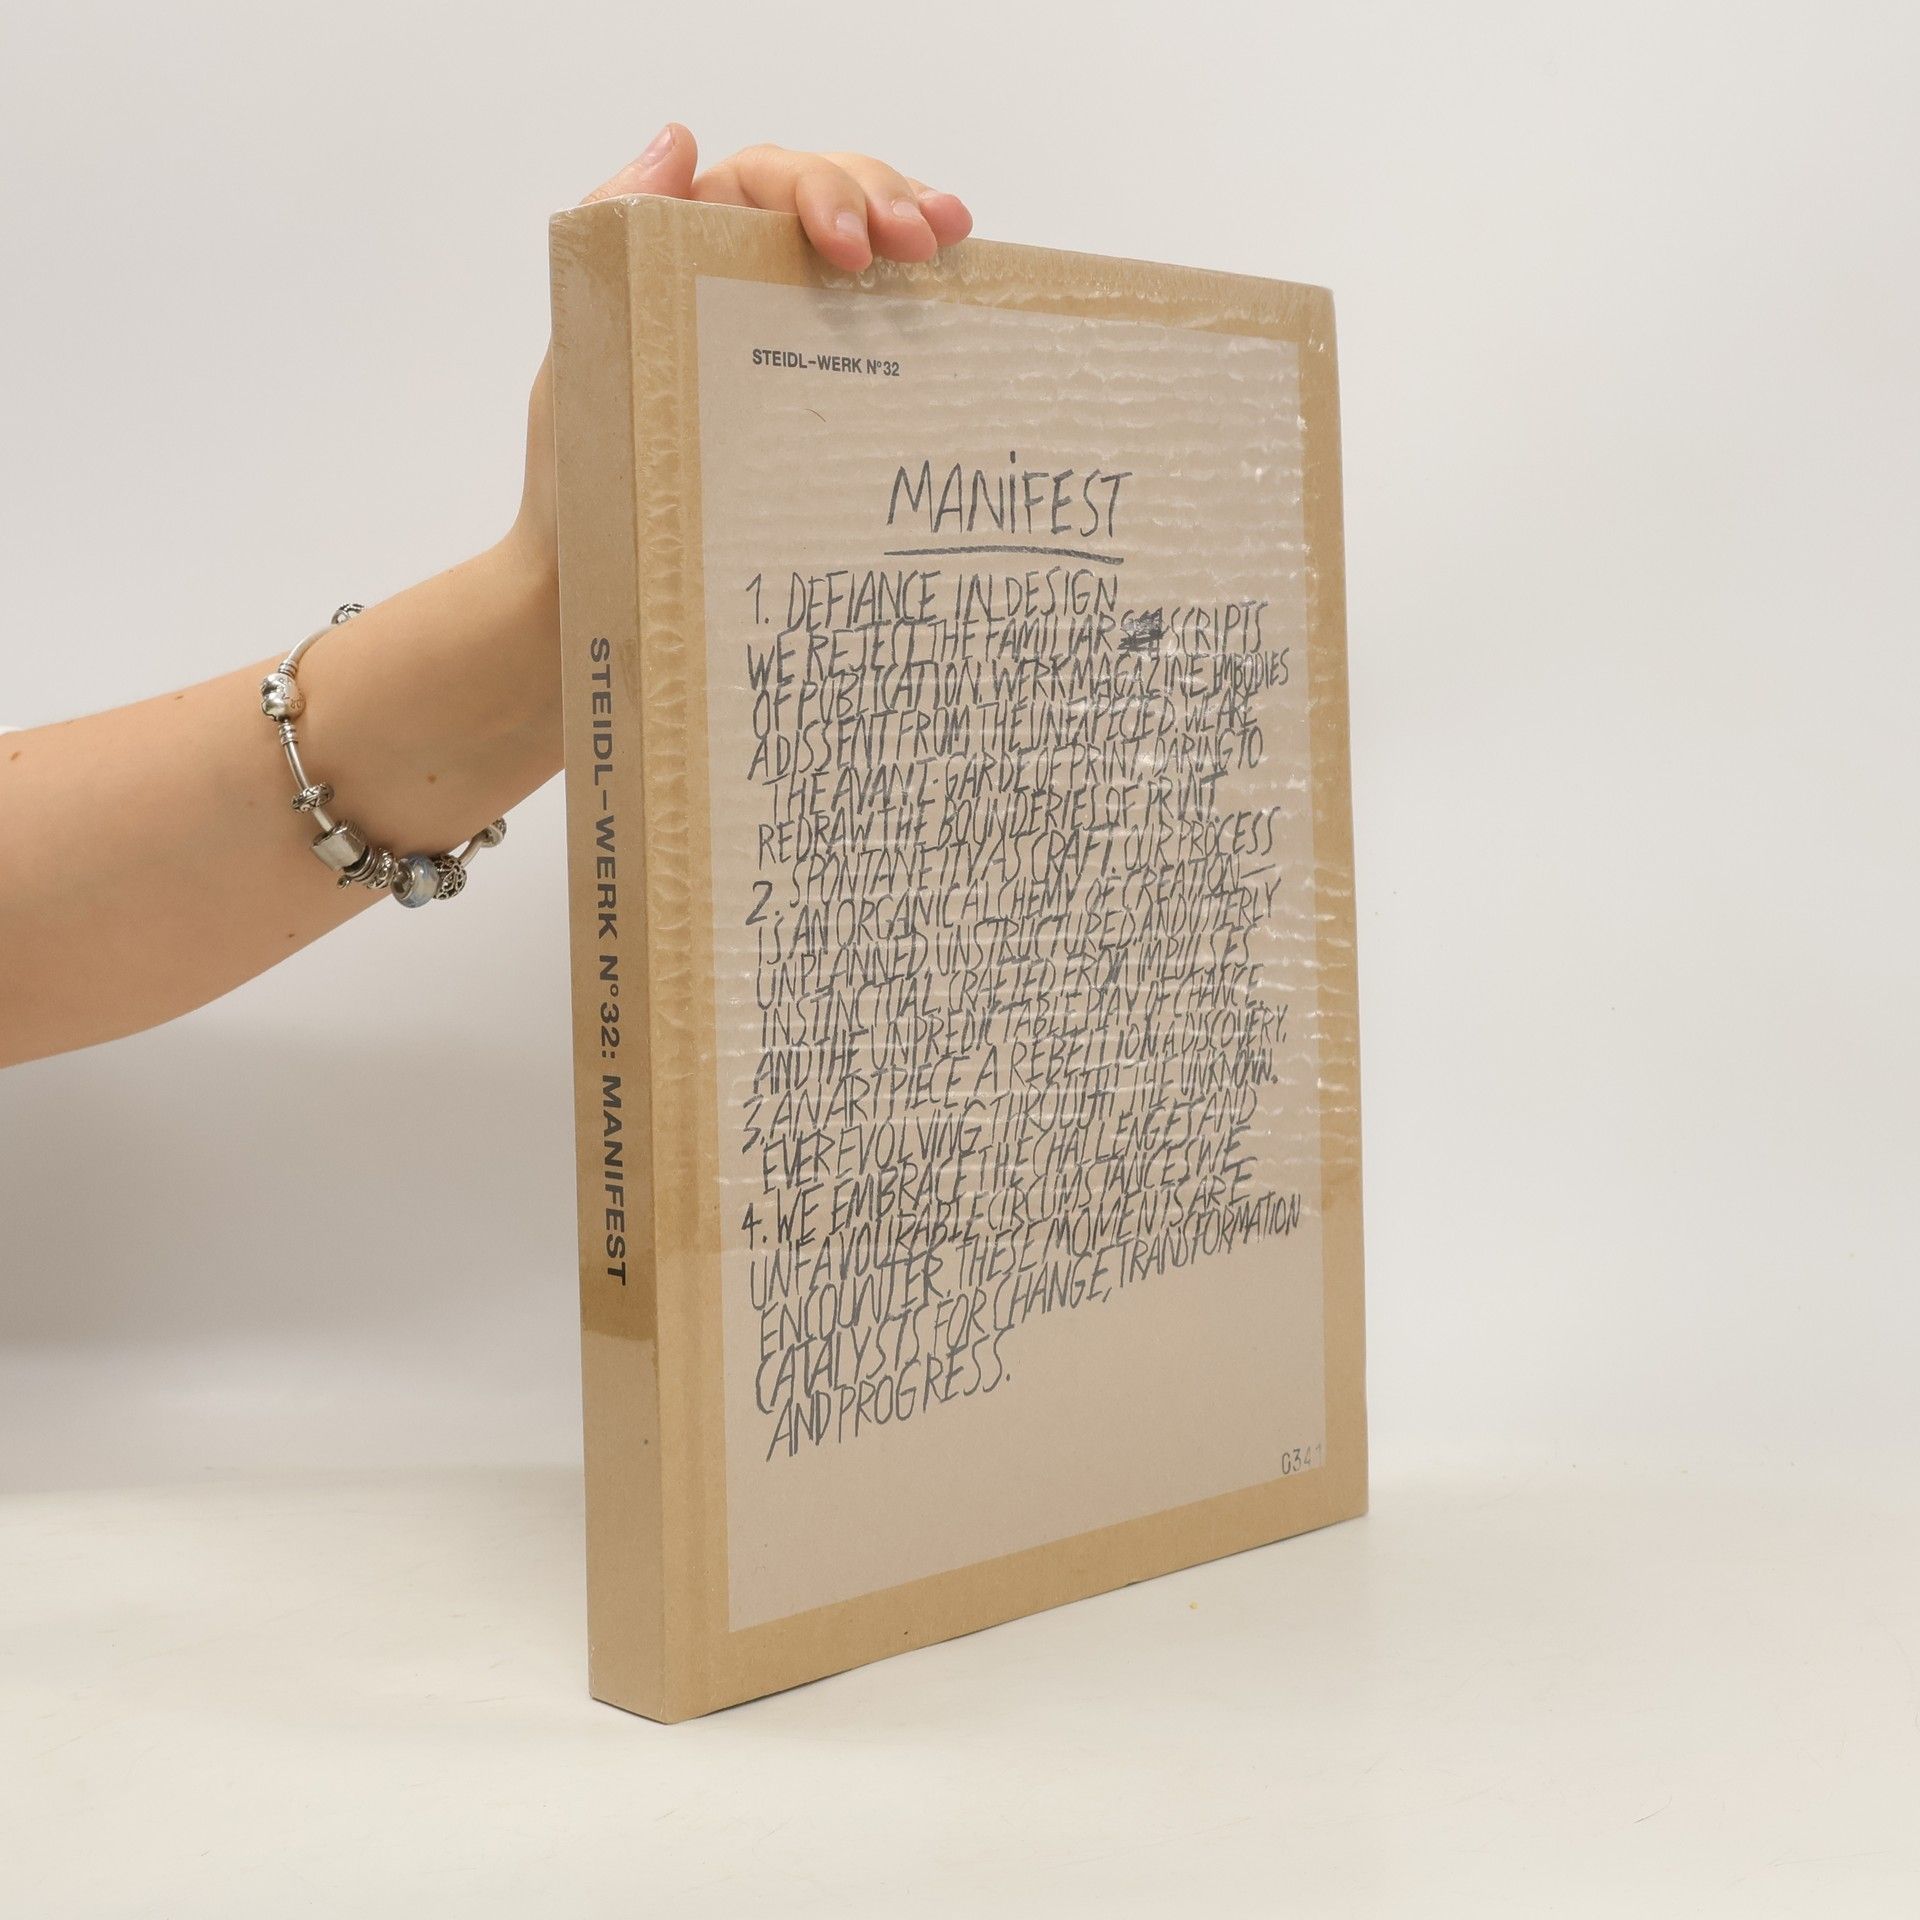 STEIDL-WERK N°32: MANIFEST
STEIDL-WERK N°32
MANiFEST
1. DEFIANCE IN DESIGN
WE REJECT THE FAMILIAR SCRIPTS
OF PUBLICATION. WERK MAGAZINE EMBODIES
A DISSENT FROM THE UNEXPECTED. WE ARE
THE AVANT-GARDE OF PRINT, DARING TO
REDRAW THE BOUNDERIES OF PRINT.
2. SPONTANEITY AS CRAFT. OUR PROCESS
IS AN ORGANIC ALCHEMY OF CREATION—
UNPLANNED, UNSTRUCTURED, AND UTTERLY
INSTINCTUAL, CRAFTED FROM IMPULSES
AND THE UNPREDICTABLE PLAY OF CHANCE.
3. AN ART PIECE. A REBELLION, A DISCOVERY.
EVER EVOLVING, THROUGH THE UNKNOWN.
4. WE EMBRACE THE CHALLENGES AND
UNFAVOURABLE CIRCUMSTANCES WE
ENCOUNTER. THESE MOMENTS ARE
CATALYSTS FOR CHANGE, TRANSFORMATION
AND PROGRESS.
0341